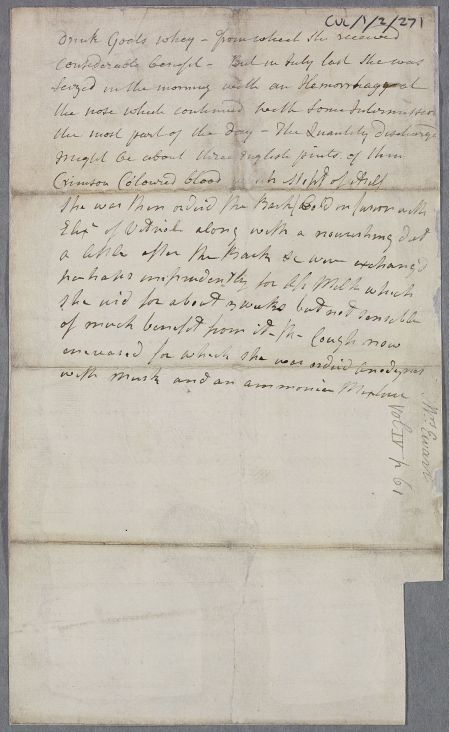 CUL/1/2/271
Drink Goats whey - from which she received
Considerable benefit - But in July last she was
Seized in the morning with an Hemorrhagy at
the nose which continued with some Intermission
the most part of the day - The Quantity discharged
might be about three English pints of thin
Crimson Coloured blood which Stopt of itself
She was then ordrd the Bark Cold
Elixr of Vitriole along with a nourishing diet
a little after the Bark &c were exchanged
perhaps imprudently for Ass Milk which
She used for about 3 weeks but not sensible
of much benefit from it - The Cough now
increased for which she was ordrd Anodynes
with musk and an ammoniac Mixture
Mrs Ewart
Vol IV p 61